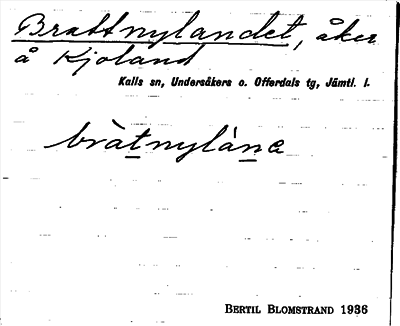 Brattnylandet, åker
å Kjoland
Kalls sn, Undersåkers o. Offerdals tg, Jämtl. l.
bràtnylàna
BERTIL BLOMSTRAND 1936